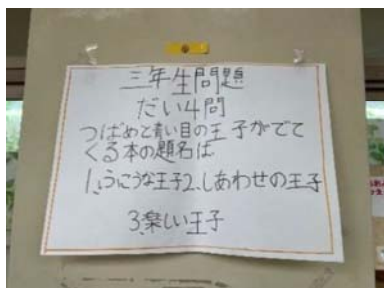 三年生問題
だい4問
つばめと青い目の王子がでて
くる本の題名は
1、うこうな王子2、しあわせの王子
3、楽しい王子